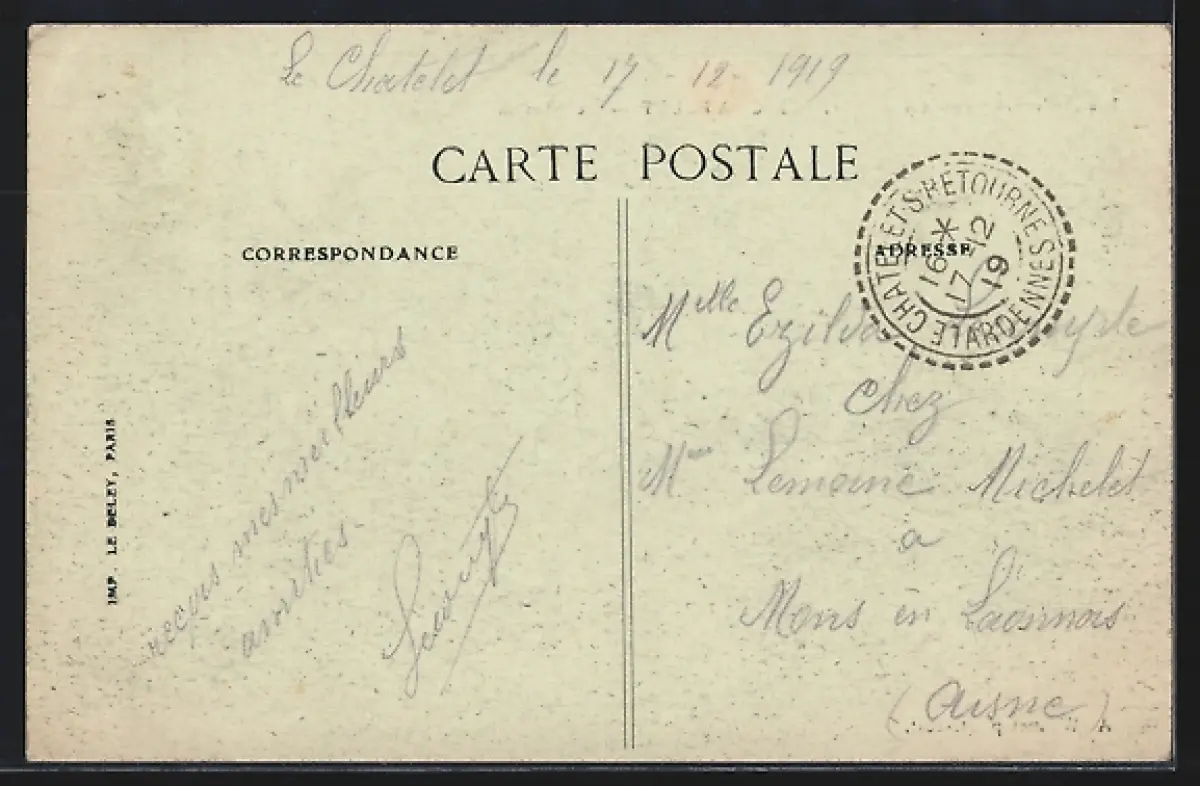 Le Chatelet le 17 - 12 - 1919
CARTE POSTALE
CORRESPONDANCE
ADRESSE
LE CHATELET S RETOURNE
ARDENNES
16 *
17 - 12
19
Melle Ezilda
chez
Mme Lemoine Michelet
a
Mons en Laonnois
(Aisne)
reçois mes meilleurs
amitiés
IMP. LE DELEY, PARIS